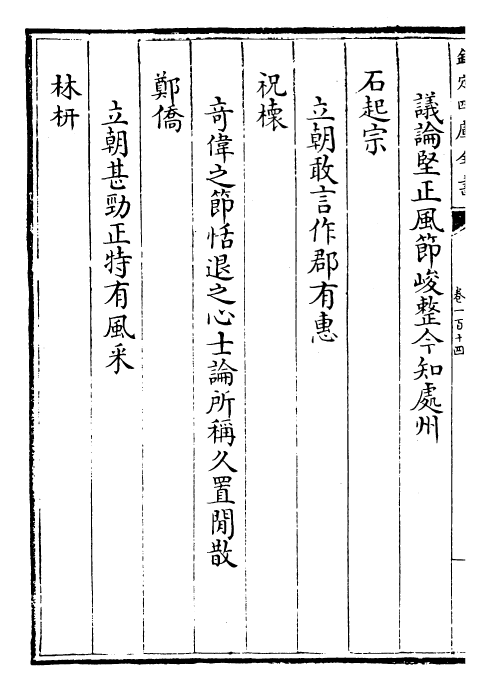 欽定四庫全書
卷一百十四
議論堅正風節峻整今知處州
石起宗
立朝敢言作郡有惠
祝櫰
竒偉之節恬退之心士論所稱久置閒散
鄭僑
立朝甚勁正特有風采
林枅